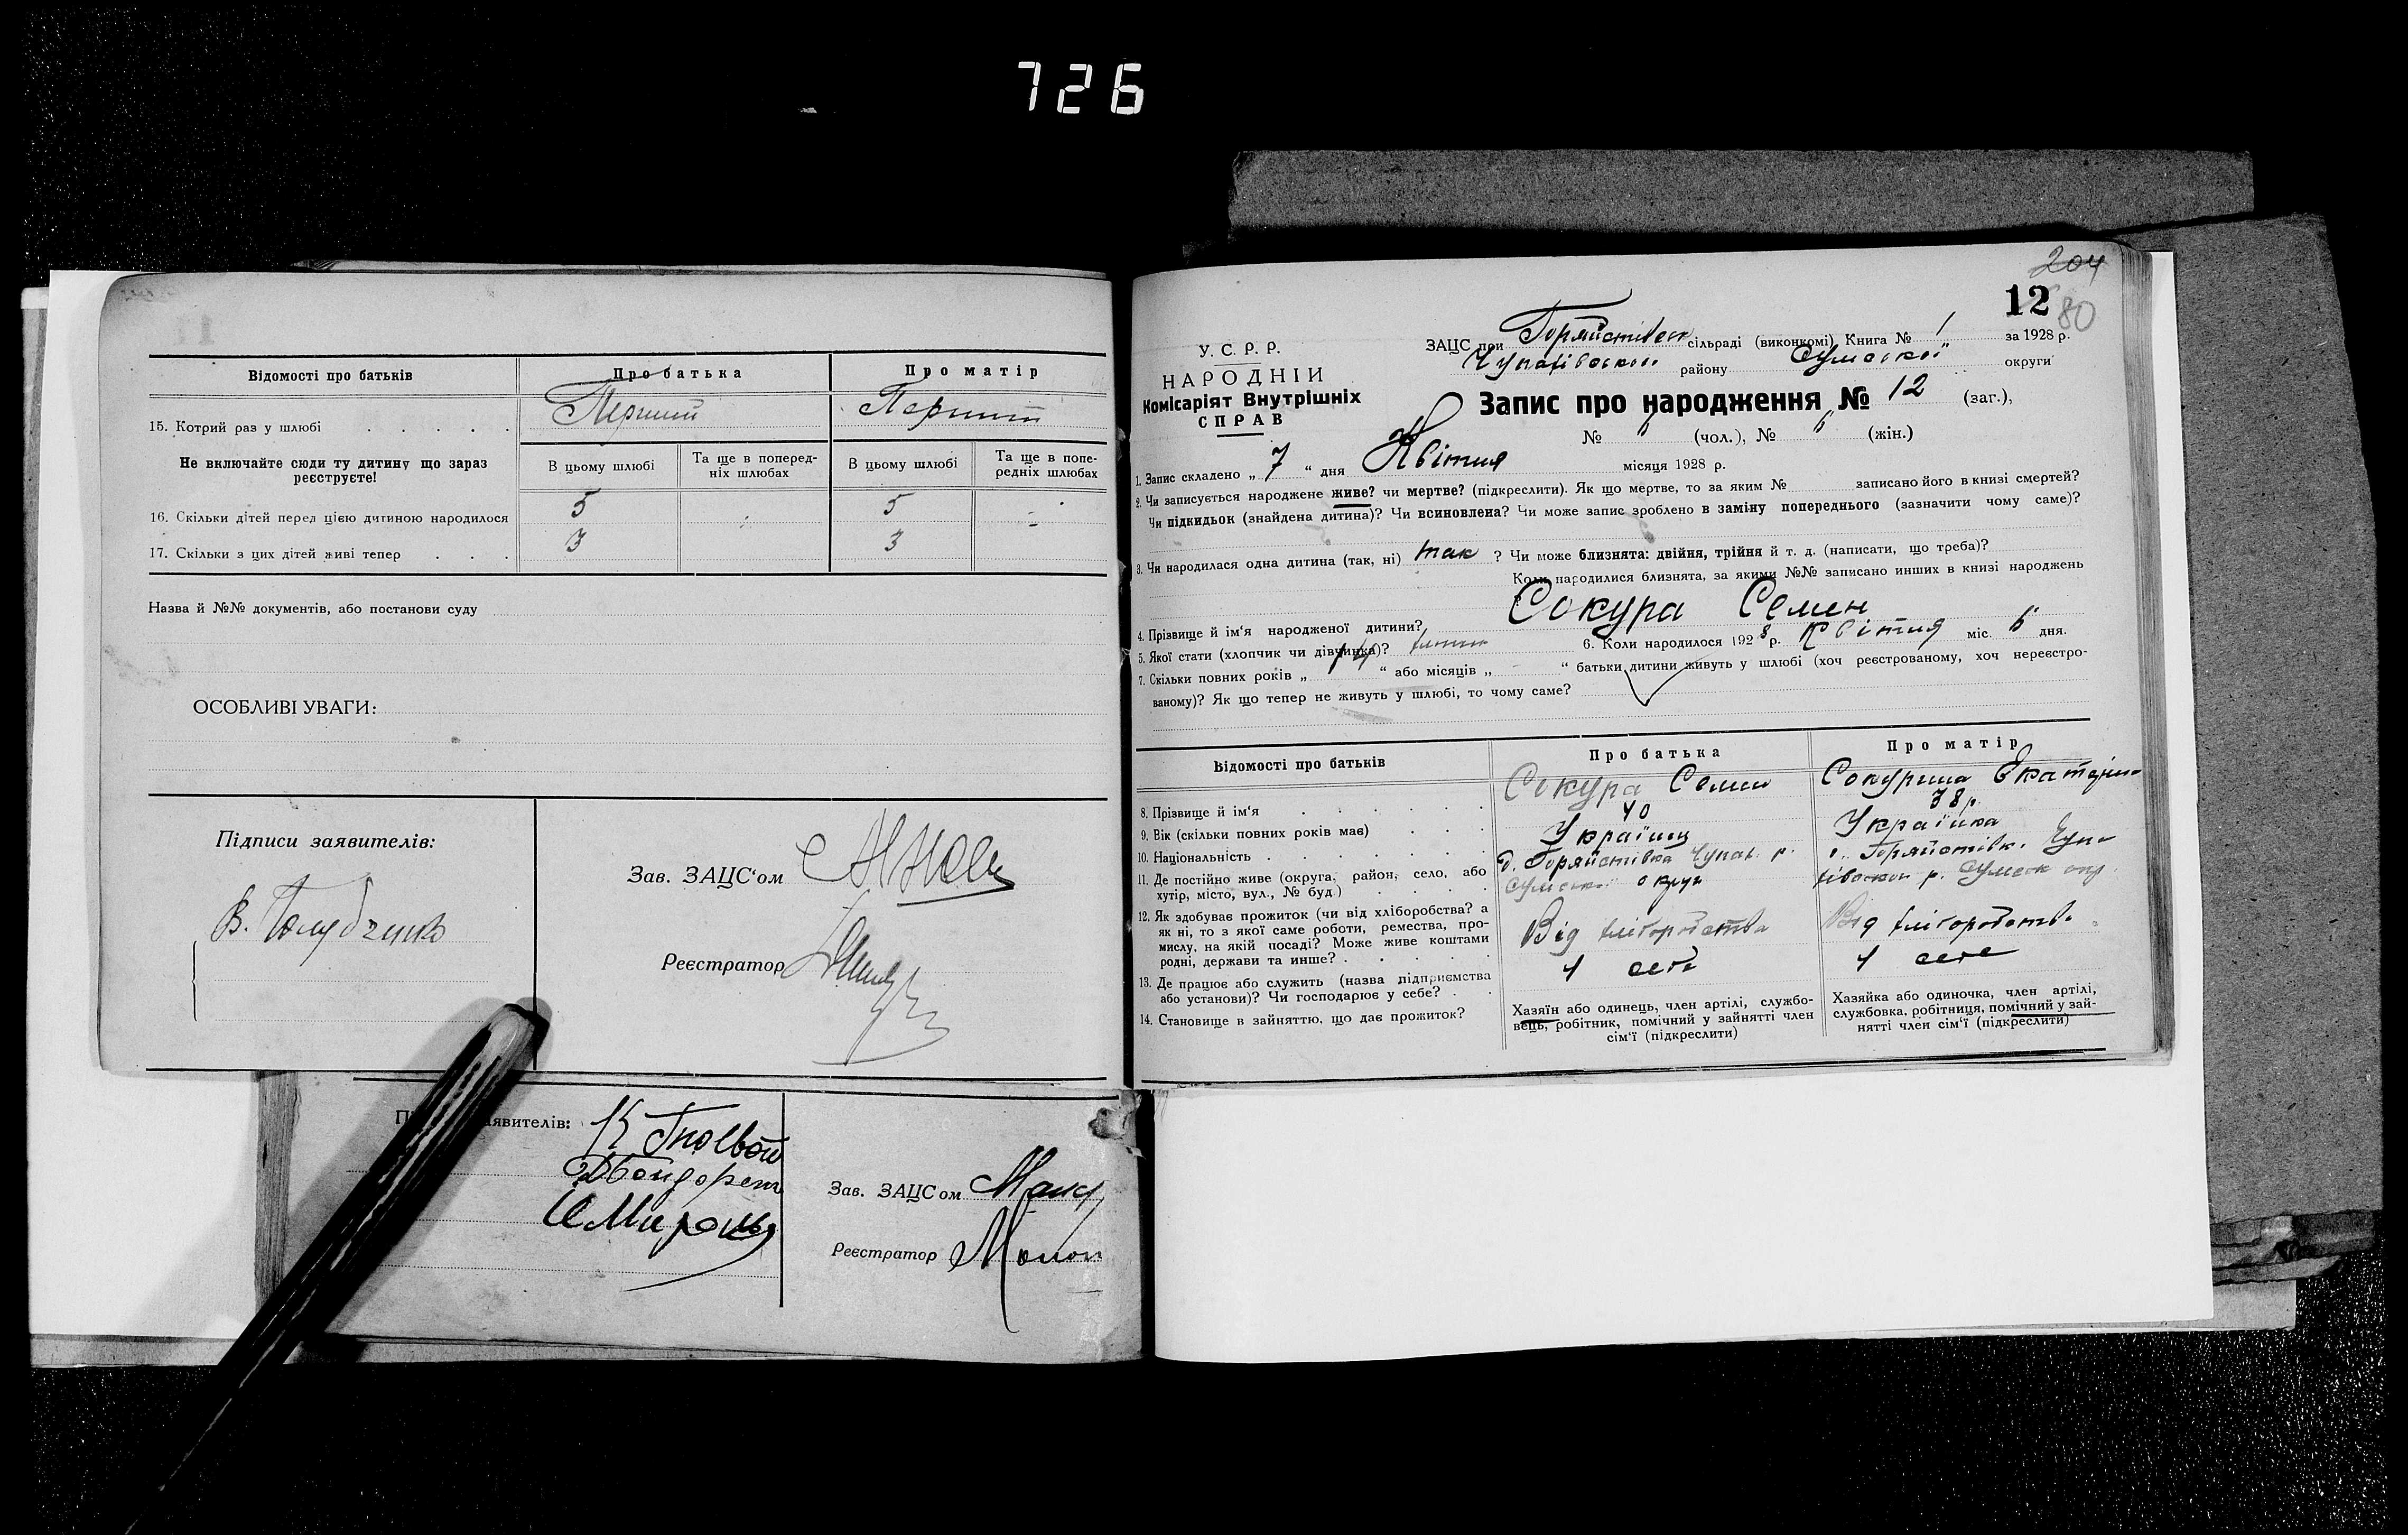 726
Відомості про батьків
Про батька
Про матір
15. Котрий раз у шлюбі . . . . .
Перший
Перший
Не включайте сюди ту дитину що зараз реєструєте!
В цьому шлюбі
Та ще в поперед-
ніх шлюбах
В цьому шлюбі
Та ще в попе-
редніх шлюбах
16. Скільки дітей перед цією дитиною народилося
5
5
17. Скільки з цих дітей живі тепер . . .
3
3
Назва й №№ документів, або постанови суду
ОСОБЛИВІ УВАГИ:
Підписи заявителів:
Зав. ЗАЦС'ом
Реєстратор
явителів:
Зав. ЗАЦС ом
Реєстратор
204
12
80
У. С. Р. Р.
НАРОДНІЙ
Комісаріят Внутрішніх
СПРАВ
ЗАЦС при сільраді (виконкомі) Книга № 1 за 1928 р.
району Сумської округи
Запис про народження № 12 (заг.),
№ 6 (чол.), № 6 (жін.)
1. Запис складено „ 7 “ дня Квітня місяця 1928 р.
2. Чи записується народжене живе? чи мертве? (підкреслити). Як що мертве, то за яким № записано його в книзі смертей?
Чи підкидьок (знайдена дитина)? Чи всиновлена? Чи може запис зроблено в заміну попереднього (зазначити чому саме)?
3. Чи народилася одна дитина (так, ні) так ? Чи може близнята: двійня, трійня й т. д. (написати, що треба)?
Коли народилися близнята, за якими №№ записано инших в книзі народжень
4. Прізвище й ім'я народженої дитини? Сокура Семен
5. Якої стати (хлопчик чи дівчинка)?
6. Коли народилося 1928 р. Квітня міс. 6 дня.
7. Скільки повних років „ 14 “ або місяців „ - “ батьки дитини живуть у шлюбі (хоч реєстрованому, хоч нереєстро-
ваному)? Як що тепер не живуть у шлюбі, то чому саме?
Відомості про батьків
Про батька
Про матір
8. Прізвище й ім'я . . . . .
Сокура Семен
Сокурина Екатерин
9. Вік (скільки повних років має) . . .
40
38 р.
10. Національність . . . . . . .
Українец
Українка
11. Де постійно живе (округа, район, село, або
хутір, місто, вул., № буд )
Сумської округ
12. Як здобуває прожиток (чи від хліборобства? а
як ні, то з якої саме роботи, ремества, про-
мислу, на якій посаді? Може живе коштами
родні, держави та инше? . . . . .
Від хліборобства
Від хліборобства
13. Де працює або служить (назва підприємства
або установи)? Чи господарює у себе? . .
У себе
У себе
14. Становище в зайняттю, що дає прожиток?
Хазяїн або одинець, член артілі, службо-
вець, робітник, помічний у зайнятті член
сім'ї (підкреслити)
Хазяйка або одиночка, член артілі,
службовка, робітниця, помічний у зай-
нятті член сім'ї (підкреслити)